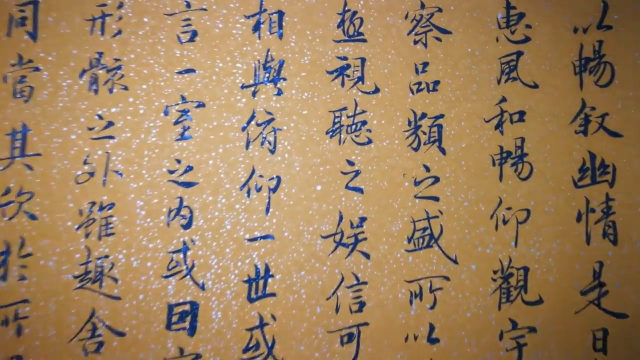 以暢叙幽情是日
惠風和暢仰觀宇
察品類之盛所以
極視聽之娱信可
相與俯仰一世或
言一室之内或因
形骸之外雖趣舍
同當其欣於所